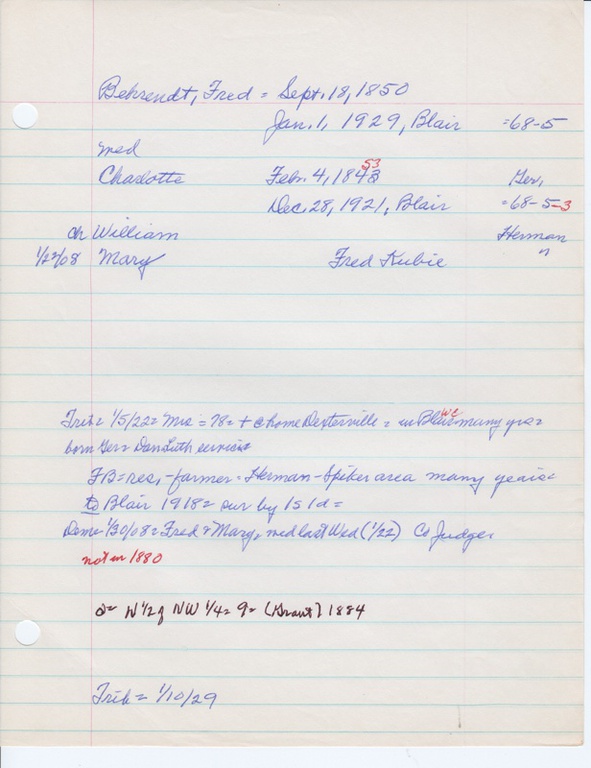 Behrendt, Fred = Sept. 18, 1850
Jan. 1, 1929, Blair =68-5
med
Charlotte Feb. 4, 1843 53 Ger,
Dec. 28, 1921, Blair =68-5-3
ch William Herman
1/22/08 Mary Fred Kubie "
Trib= 1/5/22= Mrs = 78= + @ home Dexterville = in Blair WC many yrs=
born Ger= Dan Luth services
FB= res,- farmer= Herman-Spiker area many years=
to Blair 1918= sur by 1s 1d=
Dem= 1/30/08= Fred & Mary, med last Wed (1/22) Co Judge,
not in 1880
o= W 1/2 of NW 1/4= 9= (Grant) 1884
Trib= 1/10/29